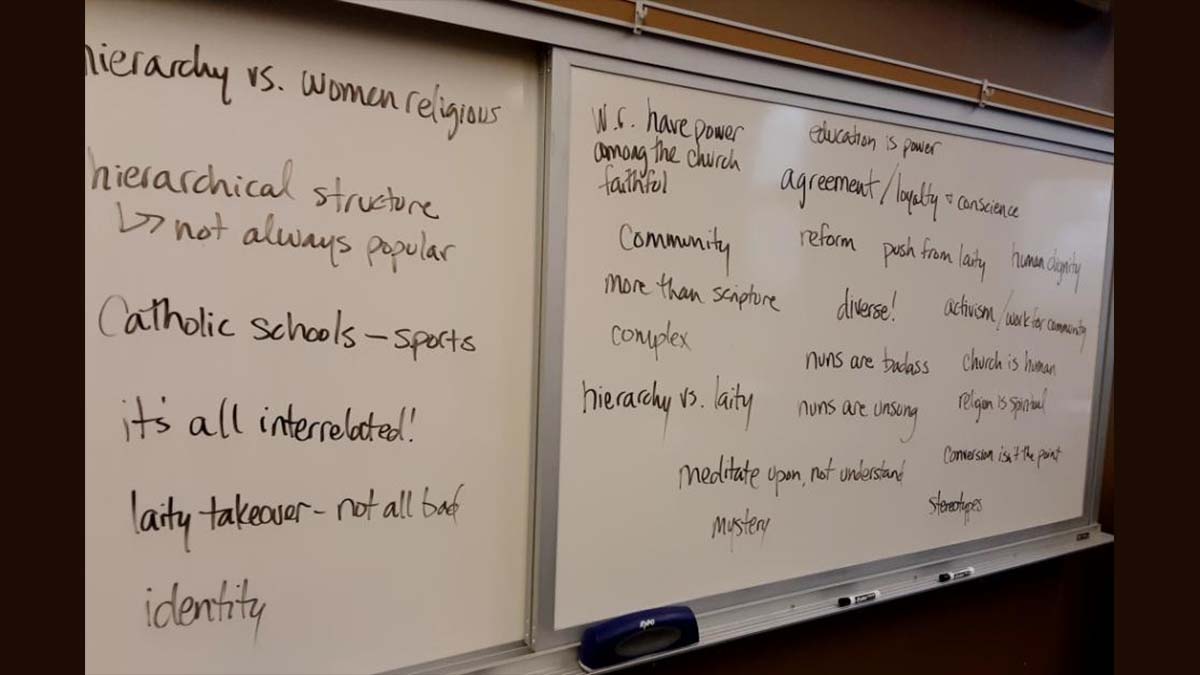 hierarchy vs. women religious
hierarchical structure
↳ not always popular
Catholic schools – sports
it's all interrelated!
laity takeover – not all bad
identity
w.r. have power
among the church
faithful
Community
more than scripture
complex
hierarchy vs. laity
meditate upon, not understand
mystery
education is power
agreement/loyalty + conscience
reform
push from laity
human dignity
diverse!
activism/work for community
nuns are badass
church is human
nuns are unsung
religion is spiritual
conversion isn't the point
stereotypes
expo